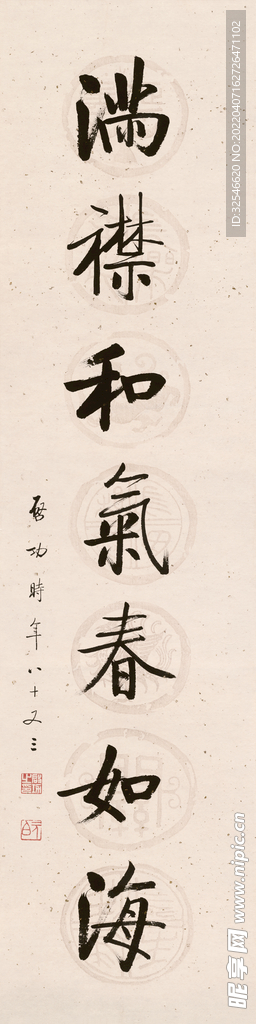 满襟和氣春如海
啓功時年八十又三
ID:32546620 NO:20220407162726471102
昵享网 www.nipic.cn